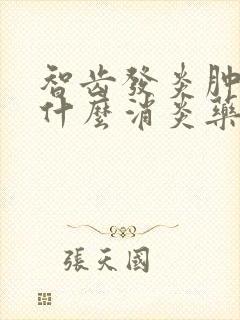 智齿發炎肿
什麼消炎藥
張天國